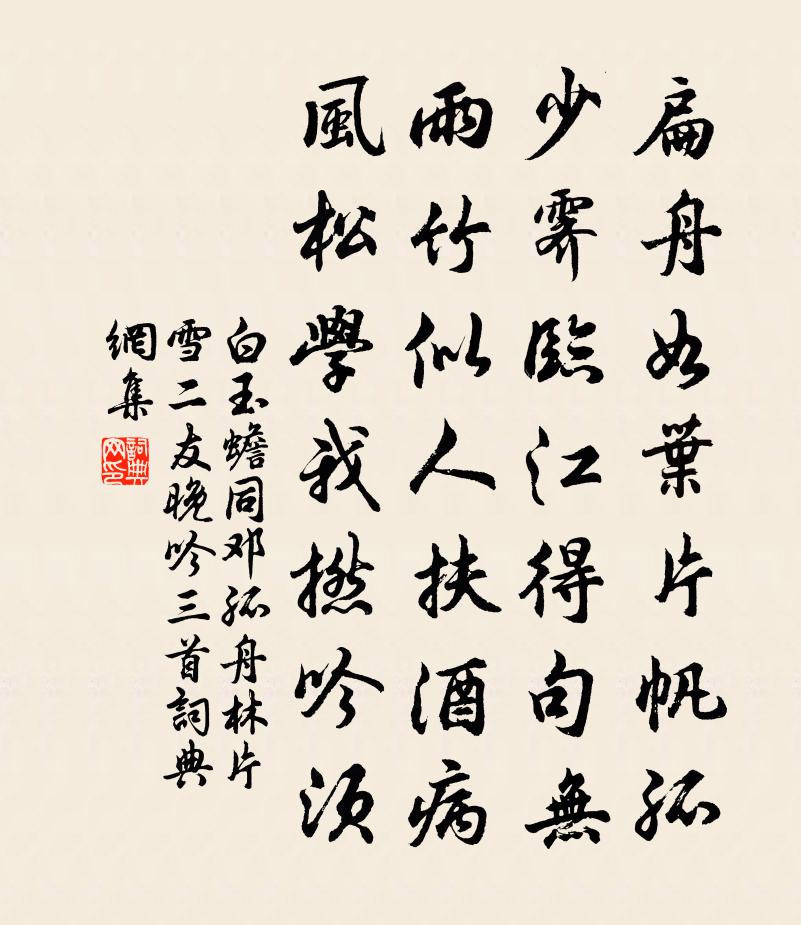 扁舟如葉片帆孤
少霽臨江得句無
雨竹似人扶酒病
風松學我撚吟須
白玉蟾同邓孤舟林片
雪二友晚吟三首詞典
網集
詞典
网印